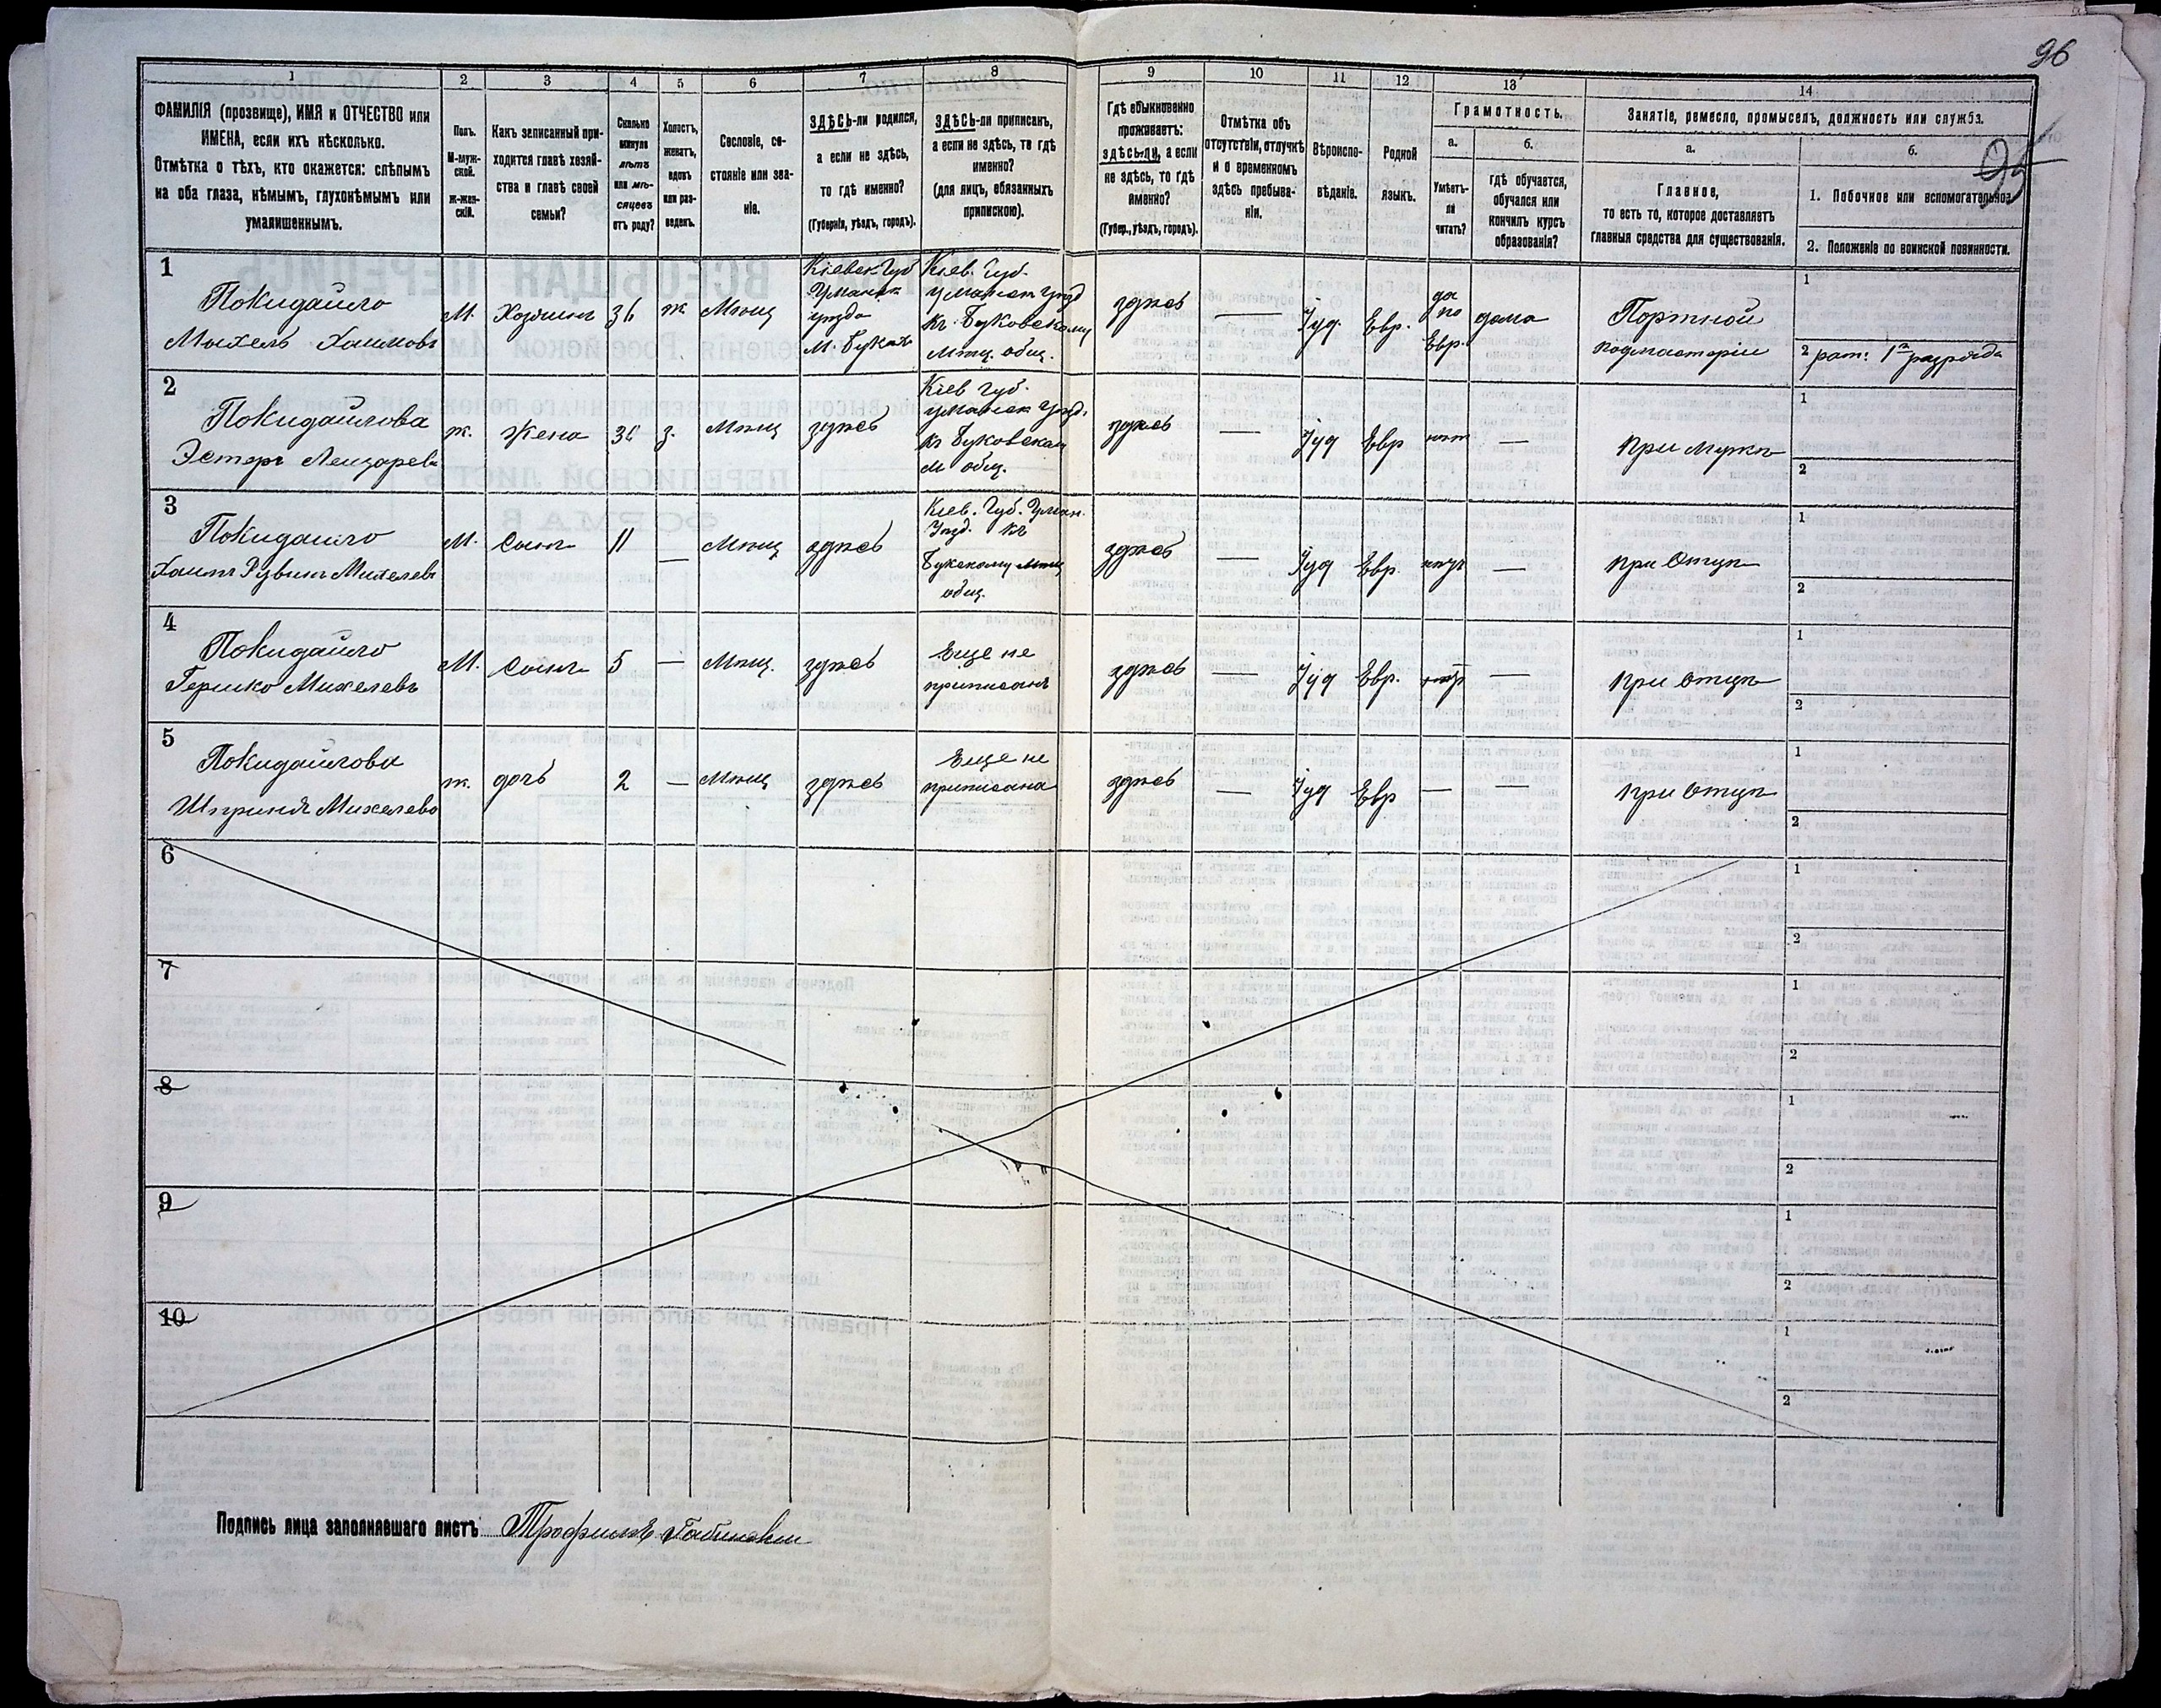 96
95
1 2 3 4 5 6 7 8 9 10 11 12 13 14
ФАМИЛІЯ (прозвище), ИМЯ и ОТЧЕСТВО или
ИМЕНА, если ихъ нѣсколько.
Отмѣтка о тѣхъ, кто окажется: слѣпымъ
на оба глаза, нѣмымъ, глухонѣмымъ или
умалишеннымъ.
Полъ.
М-муж-
ской.
Ж-жен-
скій.
Какъ записанный при-
ходится главѣ хозяй-
ства и главѣ своей
семьи?
Сколько
минуло
лѣтъ
или мѣ-
сяцевъ
отъ роду?
Холостъ,
женатъ,
вдовъ
или раз-
веденъ.
Сословіе, со-
стояніе или зва-
ніе.
ЗДѢСЬ-ли родился,
а если не здѣсь,
то гдѣ именно?
(Губернія, уѣздъ, городъ).
ЗДѢСЬ-ли приписанъ,
а если не здѣсь, то гдѣ
именно?
(для лицъ, обязанныхъ
припискою).
Гдѣ обыкновенно
проживаетъ:
здѣсь-ли, а если
не здѣсь, то гдѣ
именно?
(Губер., уѣздъ, городъ).
Отмѣтка объ
отсутствіи, отлучкѣ
и о временномъ
здѣсь пребыва-
ніи.
Вѣроиспо-
вѣданіе.
Родной
языкъ.
Грамотность.
а.
Умѣетъ-
ли
читать?
б.
гдѣ обучается,
обучался или
кончилъ курсъ
образованія?
Занятіе, ремесло, промыселъ, должность или служба.
а.
Главное,
то есть то, которое доставляетъ
главныя средства для существованія.
б.
1. Побочное или вспомогательное.
2. Положеніе по воинской повинности.
1
Покидайло
Михель Хаимовъ
М.
Хозяинъ
36
ж
Мѣщ
Кіевск. Губ
Уманск
уѣзда
М. Букахъ
Кіев. Губ.
Уманск уѣзд
къ Буковскому
Мѣщ. общ.
здѣсь
—
Іуд.
Евр.
да
по
Евр.
дома
Портной
подмастеріи
1
2 рат: 1го разряда
2
Покидайлова
Эстеръ Лейзарева
ж.
Жена
з.
Мѣщ
здѣсь
Кіев Губ.
Уманск уѣзд.
къ Буковском
М общ.
здѣсь
—
Іуд
Евр
нѣт
—
при мужѣ
1
2
3
Покидайло
Хаимъ Рувинъ Михелевъ
М.
Сынъ
11
—
Мѣщ
здѣсь
Кіев. Губ. Уман.
Уѣзд. къ
Букскому мѣщ
общ.
здѣсь
—
Іуд
Евр.
—
при Отцѣ
1
2
4
Покидайло
Гершко Михелевъ
М.
Сынъ
5
—
Мѣщ.
здѣсь
Еще не
приписанъ
здѣсь
—
Іуд
Евр.
—
при отцѣ
1
2
5
Покидайлова
Шпринця Михелева
ж.
дочь
2
—
Мѣщ
здѣсь
Еще не
приписана
здѣсь
—
Іуд
Евр
—
—
при Отцѣ
1
2
6
1
2
7
1
2
8
1
2
9
1
2
10
1
2
Подпись лица заполнявшаго листъ Трофимъ